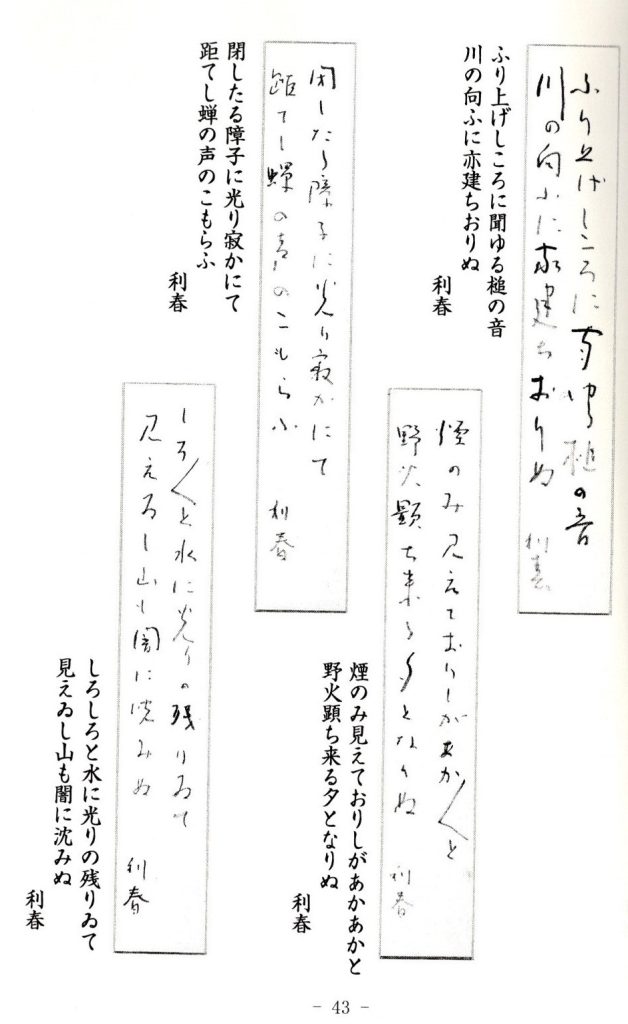 ふり上げしころに聞ゆる槌の音
川の向ふに亦建ちおりぬ
利春
ふり上げしころに聞ゆる槌の音
川の向ふに亦建ちおりぬ
利春
閉したる障子に光り寂かにて
距てし蝉の声のこもらふ
利春
閉したる障子に光り寂かにて
距てし蝉の声のこもらふ
利春
煙のみ見えておりしがあか〱と
野火顕ち来る夕となりぬ
利春
煙のみ見えておりしがあかあかと
野火顕ち来る夕となりぬ
利春
しろ〱と水に光りの残りゐて
見えゐし山も闇に沈みぬ
利春
しろしろと水に光りの残りゐて
見えゐし山も闇に沈みぬ
利春
- 43 -